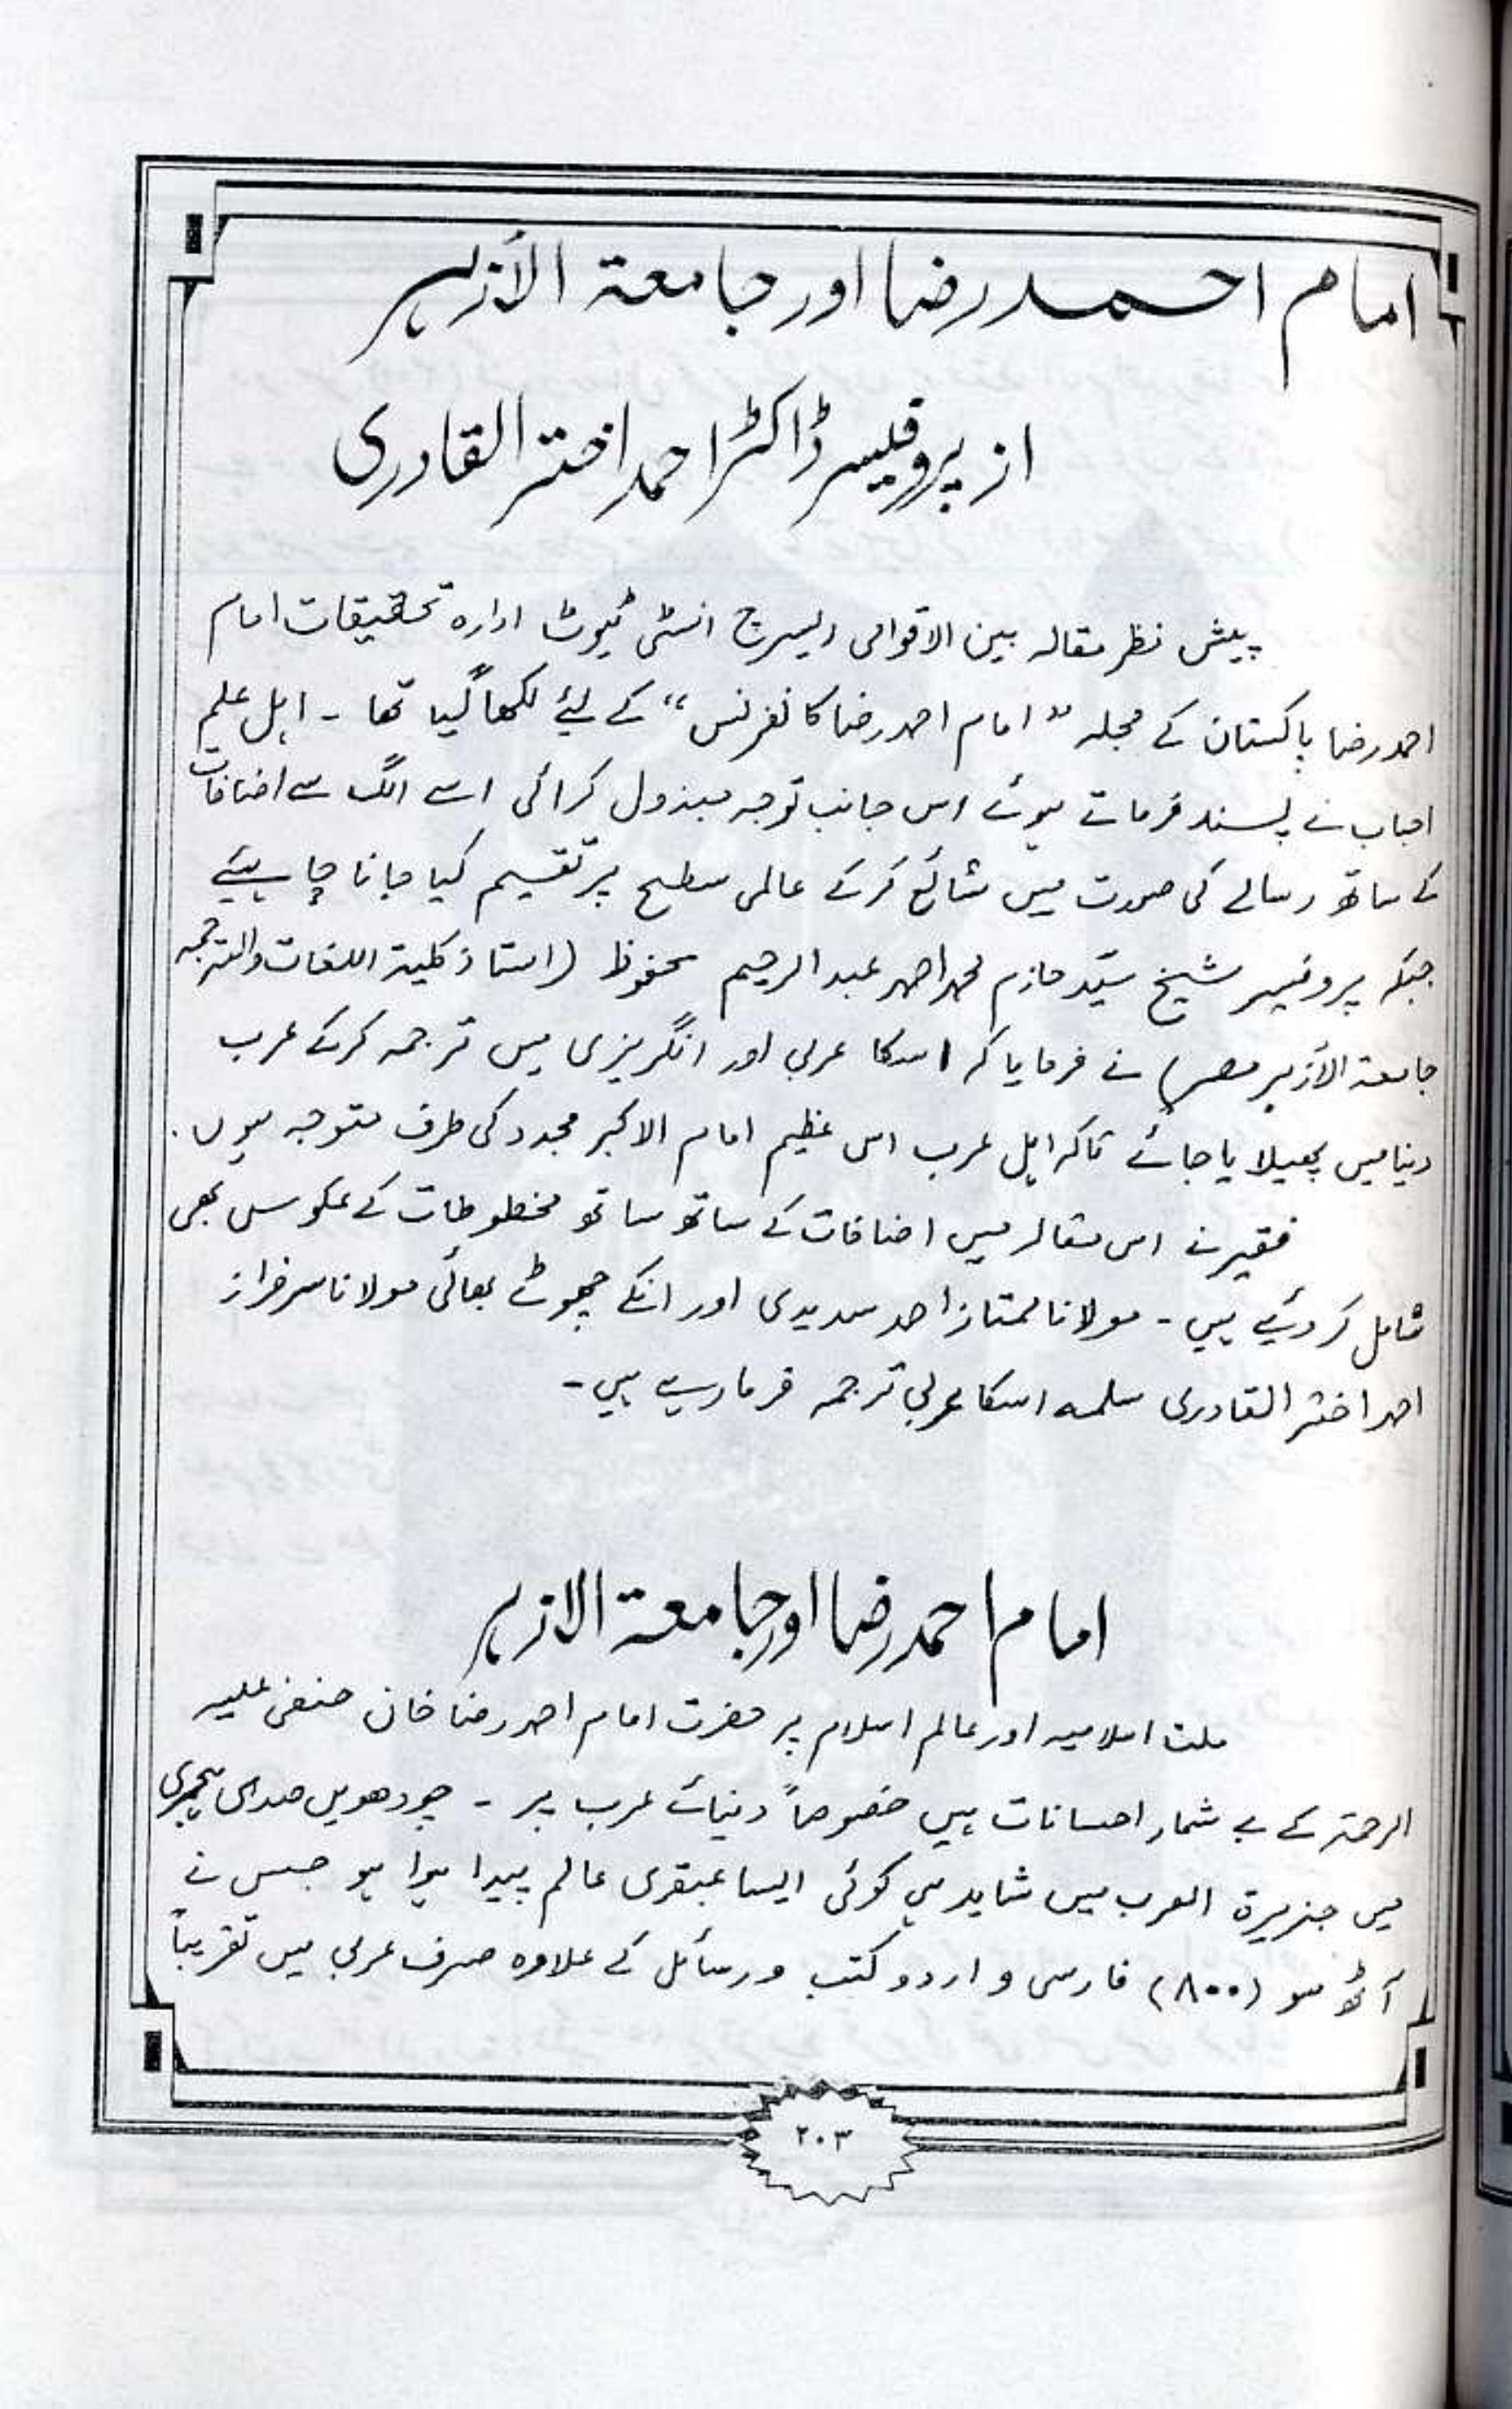 امام احمد رضا اور جامعۃ الأزہر
از پروفیسر ڈاکٹر احمد اختر القادری
پیش نظر مقالہ بین الاقوامی ریسرچ انسٹی ٹیوٹ ادارہ تحقیقات امام
احمد رضا پاکستان کے مجلہ "امام احمد رضا کانفرنس" کے لیئے لکھا گیا تھا ۔ اہل علم
احباب نے پسند فرماتے ہوئے اس جانب توجہ مبذول کرائی اسے الگ سے اضافات
کے ساتھ رسالے کی صورت میں شائع کرکے عالمی سطح پر تقسیم کیا جانا چاہیئے
جبکہ پروفیسر شیخ سیّد حازم محمد احمد عبد الرحیم محفوظ (استاذ کلیۃ اللغات والترجمہ
جامعۃ الأزہر مصر) نے فرمایا کہ اسکا عربی اور انگریزی میں ترجمہ کرکے عرب
دنیا میں پھیلایا جائے تاکہ اہل عرب اس عظیم امام الاکبر مجدد کی طرف متوجہ ہوں ۔
فقیر نے اس مقالہ میں اضافات کے ساتھ ساتھ مخطوطات کے عکوس بھی
شامل کر دیئے ہیں ۔ مولانا ممتاز احمد سدیدی اور انکے چھوٹے بھائی مولانا سرفراز
احمد اختر القادری سلمہ اسکا عربی ترجمہ فرما رہے ہیں ۔
امام احمد رضا اور جامعۃ الازہر
ملت اسلامیہ اور عالم اسلام پر حضرت امام احمد رضا خان حنفی علیہ
الرحمۃ کے بے شمار احسانات ہیں خصوصاً دنیائے عرب پر ۔ چودھویں صدی ہجری
میں جزیرۃ العرب میں شاید ہی کوئی ایسا عبقری عالم پیدا ہوا ہو جس نے
آٹھ سو (۸۰۰) فارسی و اردو کتب و رسائل کے علاوہ صرف عربی میں تقریباً
۲۰۳